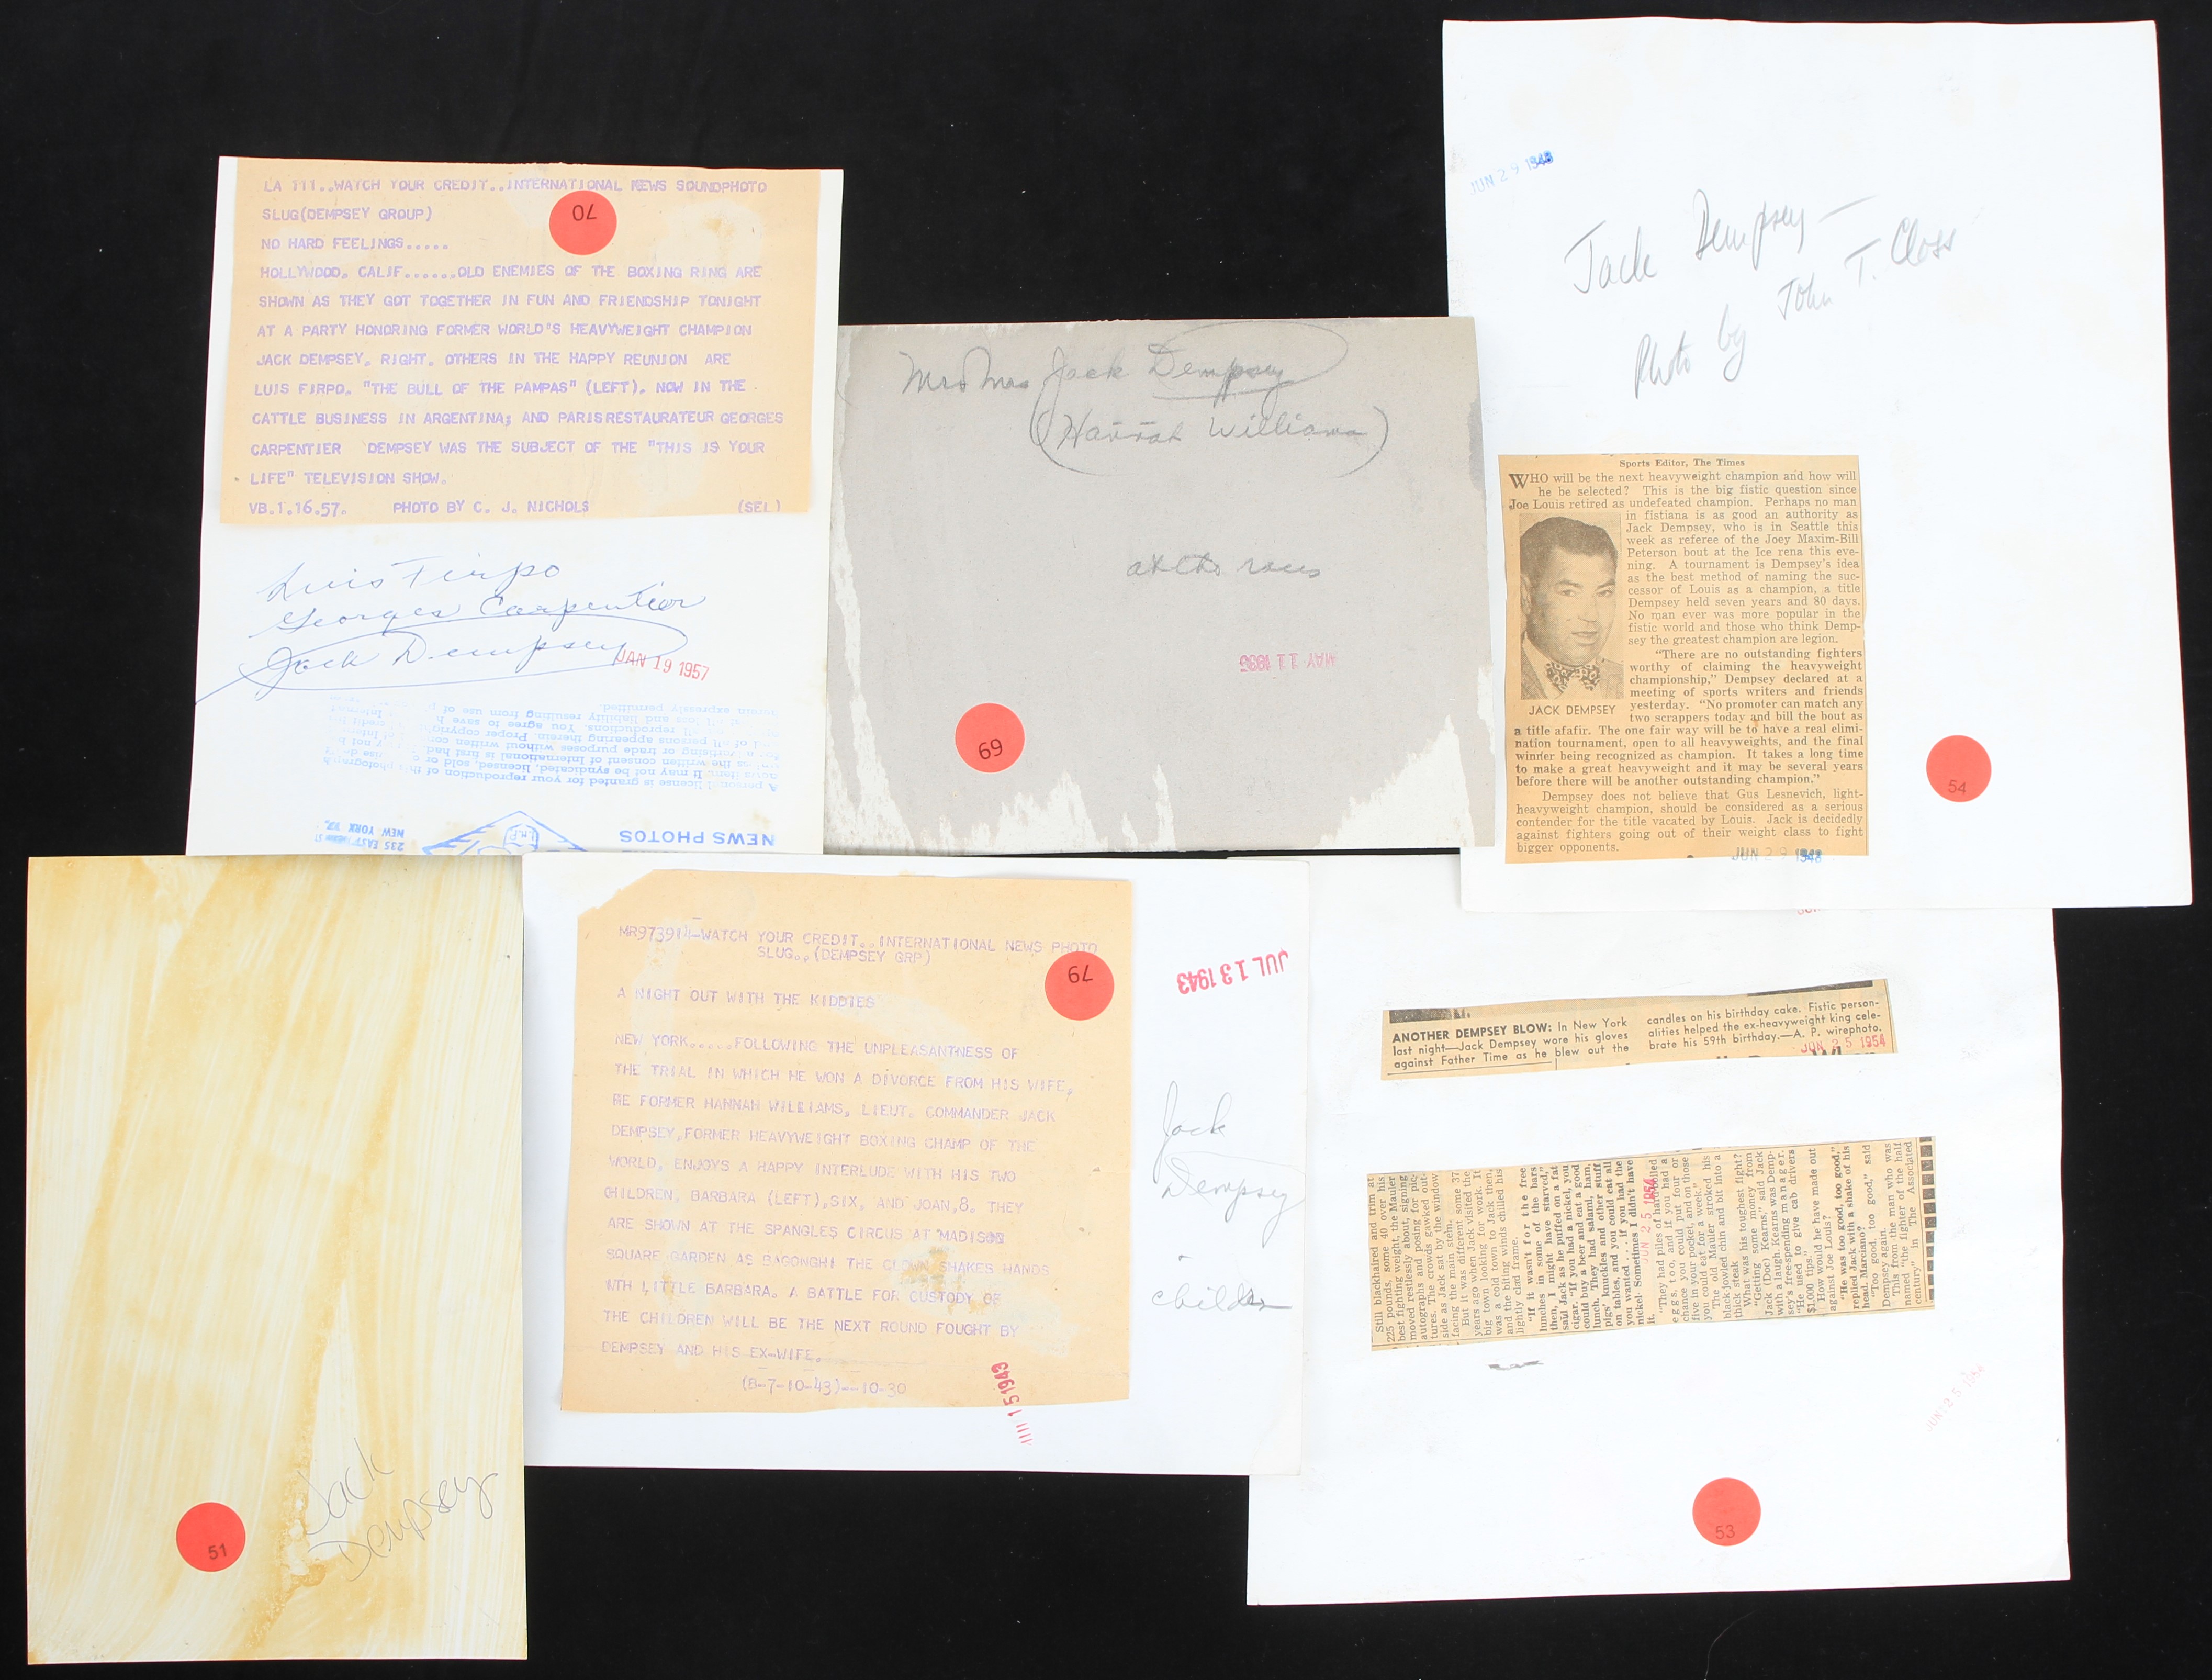 LA 111..WATCH YOUR CREDIT..INTERNATIONAL NEWS SOUNDPHOTO
SLUG(DEMPSEY GROUP)
70
NO HARD FEELINGS.....
HOLLYWOOD. CALIF......OLD ENEMIES OF THE BOXING RING ARE
SHOWN AS THEY GOT TOGETHER IN FUN AND FRIENDSHIP TONIGHT
AT A PARTY HONORING FORMER WORLD"S HEAVYWEIGHT CHAMPION
JACK DEMPSEY. RIGHT. OTHERS IN THE HAPPY REUNION ARE
LUIS FIRPO. "THE BULL OF THE PAMPAS" (LEFT). NOW IN THE
CATTLE BUSINESS IN ARGENTINA; AND PARIS RESTAURATEUR GEORGES
CARPENTIER DEMPSEY WAS THE SUBJECT OF THE "THIS IS YOUR
LIFE" TELEVISION SHOW.
VB.1.16.57. PHOTO BY C. J. NICHOLS (SEL)
Luis Firpo
Georges Carpentier
Jack Dempsey
JAN 19 1957
NEWS PHOTOS
235 EAST
NEW YORK 17.
A personal license is granted for your reproduction of this photograph
Mr & Mrs Jack Dempsey
(Hannah Williams)
at the races
MAY 11 1935
69
JUN 29 1948
Jack Dempsey —
Photo by John T. Closs
Sports Editor, The Times
WHO will be the next heavyweight champion and how will
he be selected? This is the big fistic question since
Joe Louis retired as undefeated champion. Perhaps no man
in fistiana is as good an authority as
Jack Dempsey, who is in Seattle this
week as referee of the Joey Maxim-Bill
Peterson bout at the Ice rena this eve-
ning. A tournament is Dempsey's idea
as the best method of naming the suc-
cessor of Louis as a champion, a title
Dempsey held seven years and 80 days.
No man ever was more popular in the
fistic world and those who think Demp-
sey the greatest champion are legion.
"There are no outstanding fighters
worthy of claiming the heavyweight
championship," Dempsey declared at a
meeting of sports writers and friends
yesterday. "No promoter can match any
two scrappers today and bill the bout as
JACK DEMPSEY
a title afafir. The one fair way will be to have a real elimi-
nation tournament, open to all heavyweights, and the final
winner being recognized as champion. It takes a long time
to make a great heavyweight and it may be several years
before there will be another outstanding champion."
Dempsey does not believe that Gus Lesnevich, light-
heavyweight champion, should be considered as a serious
contender for the title vacated by Louis. Jack is decidedly
against fighters going out of their weight class to fight
bigger opponents.
JUN 29 1948
54
Jack
Dempsey
51
MR973914-WATCH YOUR CREDIT..INTERNATIONAL NEWS PHOTO
SLUG..(DEMPSEY GRP)
67
A NIGHT OUT WITH THE KIDDIES
NEW YORK.....FOLLOWING THE UNPLEASANTNESS OF
THE TRIAL IN WHICH HE WON A DIVORCE FROM HIS WIFE,
HE FORMER HANNAH WILLIAMS, LIEUT. COMMANDER JACK
DEMPSEY,FORMER HEAVYWEIGHT BOXING CHAMP OF THE
WORLD, ENJOYS A HAPPY INTERLUDE WITH HIS TWO
CHILDREN, BARBARA (LEFT),SIX, AND JOAN,8. THEY
ARE SHOWN AT THE SPANGLES CIRCUS AT MADISON
SQUARE GARDEN AS BAGONGHI THE CLOWN SHAKES HANDS
WTH LITTLE BARBARA. A BATTLE FOR CUSTODY OF
THE CHILDREN WILL BE THE NEXT ROUND FOUGHT BY
DEMPSEY AND HIS EX-WIFE.
(B-7-10-43)--10-30
JUL 13 1943
15 1943
Jack
Dempsey
-
children
ANOTHER DEMPSEY BLOW: In New York
last night—Jack Dempsey wore his gloves
against Father Time as he blew out the
candles on his birthday cake. Fistic person-
alities helped the ex-heavyweight king cele-
brate his 59th birthday.—A. P. wirephoto.
JUN 25 1954
Still blackhaired and trim at
225 pounds, some 40 over his
best fighting weight, the Mauler
moved restlessly about, signing
autographs and posing for pic-
tures. The crowds gawked out-
side as Jack sat by the window
facing the main stem.
But it was different some 37
years ago when Jack visited the
big town looking for work. It
was a cold town to Jack then,
and the biting winds chilled his
lightly clad frame.
"If it wasn't for the free
lunches in some of the bars
then, I might have starved,"
said Jack as he puffed on a fat
cigar. "If you had a nickel, you
could buy a beer and eat a good
lunch. They had salami, ham,
pigs' knuckles and other stuff
on tables, and you could eat all
you wanted . . . if you had the
nickel. Sometimes I didn't have
it.
"They had piles of hardboiled
eggs, too, and if you had a
chance you could put four or
five in your pocket, and on those
you could eat for a week."
The old Mauler stroked his
black-jowled chin and bit into a
thick steak
What was his toughest fight?
"Getting some money from
Jack (Doc) Kearns," said Jack
with a laugh. Kearns was Demp-
sey's free-spending manager.
"He used to give cab drivers
$1,000 tips."
How would he have made out
against Joe Louis?
"He was too good, too good,"
replied Jack with a shake of his
head. Marciano?
"Too good, too good," said
Dempsey again.
This from the man who was
named "the fighter of the half
century" in The Associated
JUN 25 1954
JUN 25 1954
53